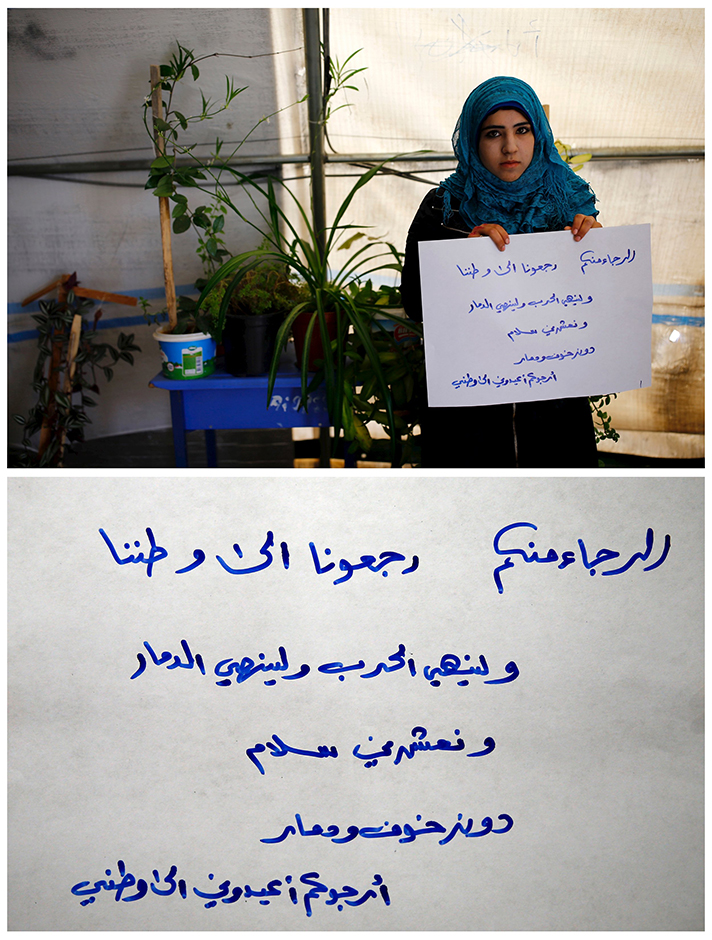 الرجاء منكم رجعونا الى وطننا
ولينهي الحرب ولينهي الدمار
ونعش في سلام
دون خوف ودمار
أرجوكم أعيدوني الى وطني
الرجاء منكم رجعونا الى وطننا
ولينهي الحرب ولينهي الدمار
ونعش في سلام
دون خوف ودمار
أرجوكم أعيدوني الى وطني